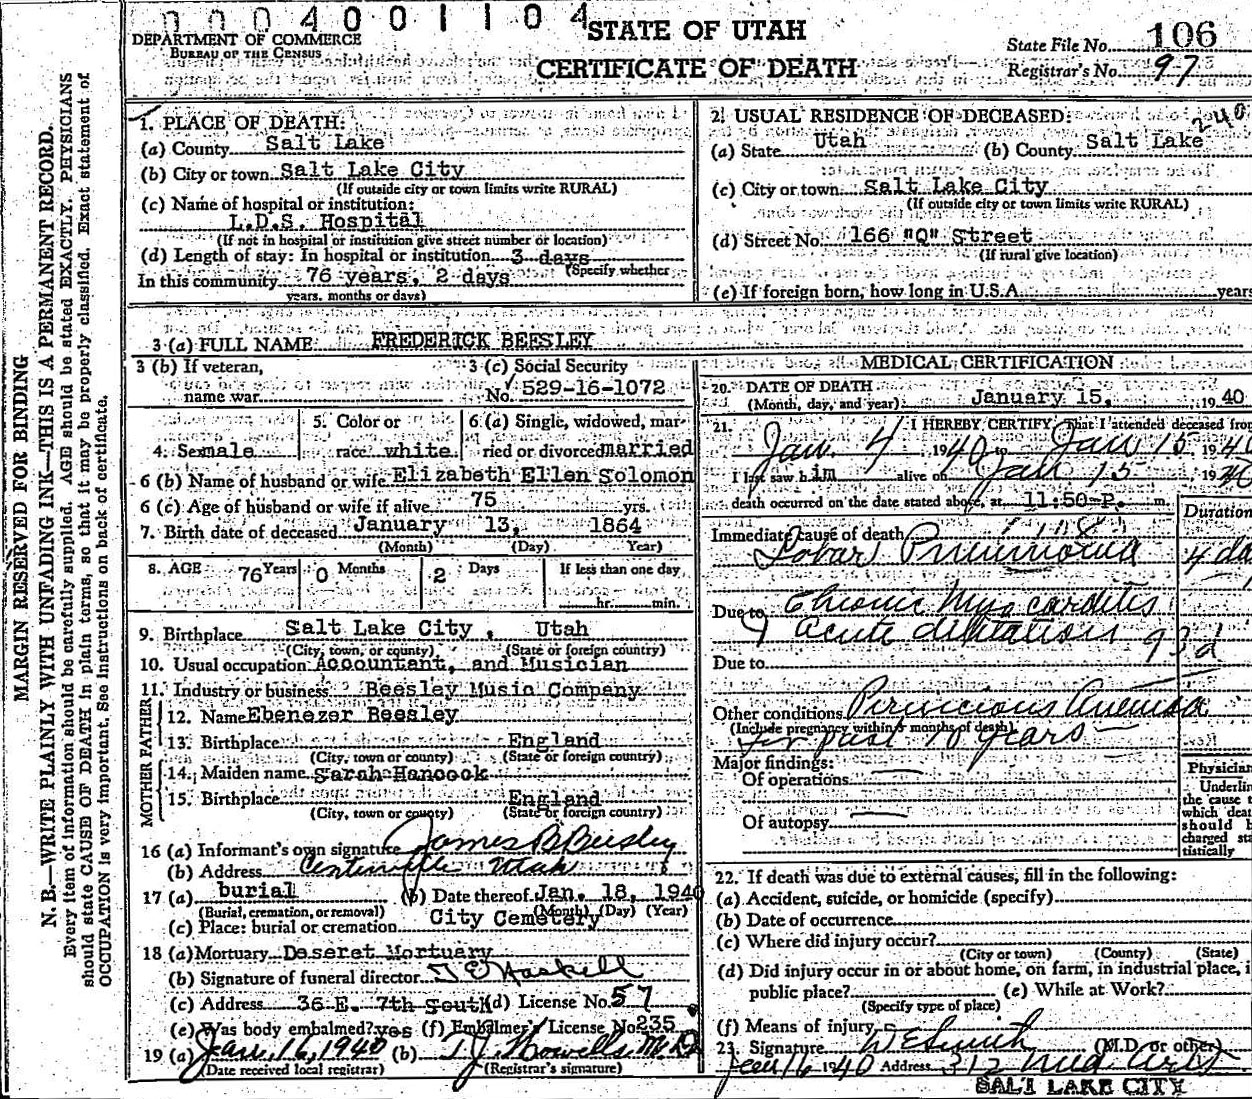 0004001104
DEPARTMENT OF COMMERCE
BUREAU OF THE CENSUS
STATE OF UTAH
CERTIFICATE OF DEATH
State File No. 106
Registrar's No. 97
MARGIN RESERVED FOR BINDING
N. B.—WRITE PLAINLY WITH UNFADING INK—THIS IS A PERMANENT RECORD.
Every item of information should be carefully supplied. AGE should be stated EXACTLY. PHYSICIANS
should state CAUSE OF DEATH in plain terms, so that it may be properly classified. Exact statement of
OCCUPATION is very important. See instructions on back of certificate.
1. PLACE OF DEATH:
(a) County Salt Lake
(b) City or town Salt Lake City
(If outside city or town limits write RURAL)
(c) Name of hospital or institution:
L.D.S. Hospital
(If not in hospital or institution give street number or location)
(d) Length of stay: In hospital or institution 3 days
(Specify whether
In this community 76 years, 2 days
years, months or days)
2. USUAL RESIDENCE OF DECEASED: 240
(a) State Utah (b) County Salt Lake
(c) City or town Salt Lake City
(If outside city or town limits write RURAL)
(d) Street No. 166 "Q" Street
(If rural give location)
(e) If foreign born, how long in U.S.A. years
3 (a) FULL NAME FREDERICK BEESLEY
3 (b) If veteran,
name war
3 (c) Social Security
No. 529-16-1072
4. Sex male
5. Color or
race white
6 (a) Single, widowed, mar-
ried or divorced married
6 (b) Name of husband or wife Elizabeth Ellen Solomon
6 (c) Age of husband or wife if alive 75 yrs.
7. Birth date of deceased January 13, 1864
(Month) (Day) Year)
8. AGE 76 Years 0 Months 2 Days If less than one day
hr. min.
9. Birthplace Salt Lake City, Utah
(City, town, or county) (State or foreign country)
10. Usual occupation Accountant, and Musician
11. Industry or business Beesley Music Company
FATHER
12. Name Ebenezer Beesley
13. Birthplace England
(City, town or county) (State or foreign country)
MOTHER
14. Maiden name Sarah Hancock
15. Birthplace England
(City, town or county) (State or foreign country)
16 (a) Informant's own signature James B Beesley
(b) Address Centerville Utah
17 (a) burial (b) Date thereof Jan. 18, 1940
(Burial, cremation, or removal) (Month) (Day) (Year)
(c) Place: burial or cremation City Cemetery
18 (a) Mortuary Deseret Mortuary
(b) Signature of funeral director T E Haskell
(c) Address 36 E. 7th South (d) License No. 57
(e) Was body embalmed? yes (f) Embalmer's License No. 235
19 (a) Jan. 16, 1940 (b) T. J. Howells M.D.
(Date received local registrar) (Registrar's signature)
MEDICAL CERTIFICATION
20. DATE OF DEATH
(Month, day, and year) January 15, 1940
21. I HEREBY CERTIFY, That I attended deceased from
Jan. 4 1940 to Jan 15 1940
I last saw h im alive on Jan 15 1940
death occurred on the date stated above, at 11:50 P. m.
Duration
Immediate cause of death 108
Lobar Pneumonia 4 da
Due to Chronic Myocarditis
acute dilitation 93d
Due to
Other conditions Pernicious Anemia
(Include pregnancy within 3 months of death)
for past 10 years
Major findings:
Of operations
Of autopsy
Physician
Underlin
the cause t
which deat
should b
charged sta
tistically
22. If death was due to external causes, fill in the following:
(a) Accident, suicide, or homicide (specify)
(b) Date of occurrence
(c) Where did injury occur?
(City or town) (County) (State)
(d) Did injury occur in or about home, on farm, in industrial place, i
public place? (e) While at Work?
(Specify type of place)
(f) Means of injury
23. Signature W E Smith (M.D. or other)
Jan 16 1940 Address 312 Med Arts
SALT LAKE CITY